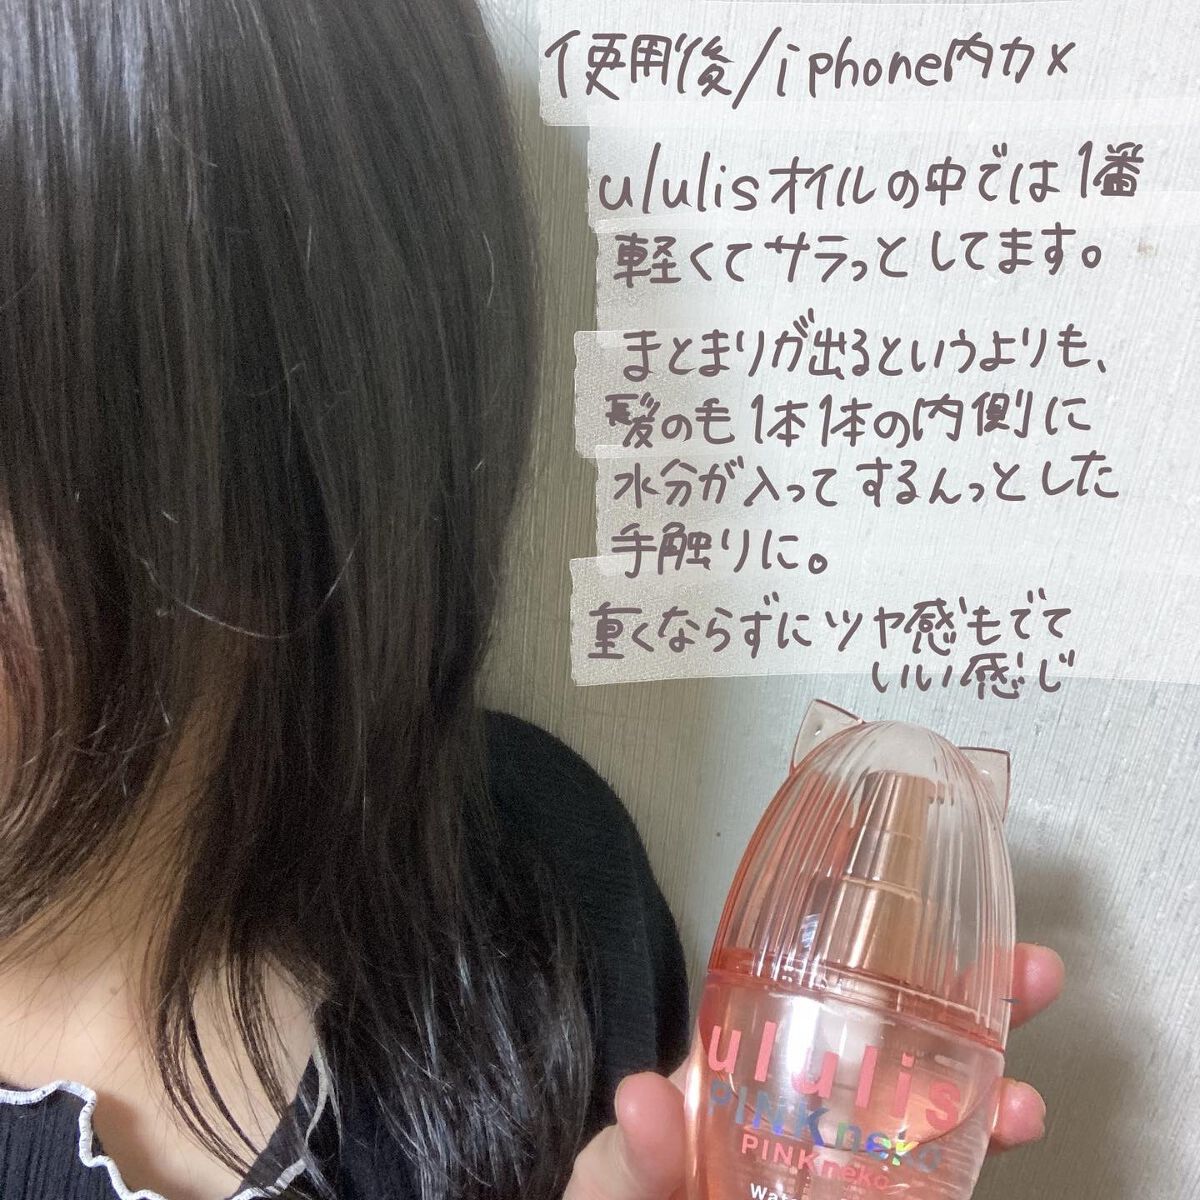 使用後/iphone内カメ
ululisオイルの中では1番
軽くてサラっとしてます。
まとまりが出るというよりも、
髪の毛1本1本の内側に
水分が入ってするんっとした
手触りに。
重くならずにツヤ感もでて
いい感じ
ululis
PINKneko
PINKneko